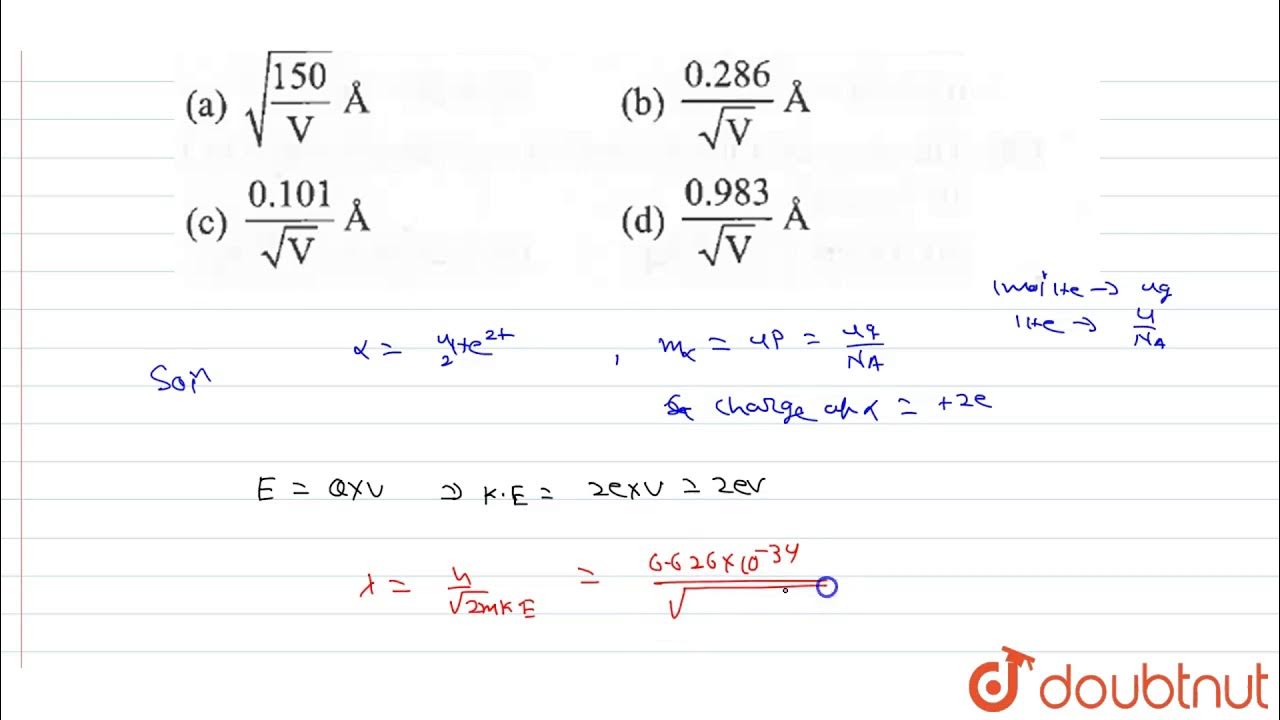 (a) √(150/V) Å (b) 0.286/√V Å
(c) 0.101/√V Å (d) 0.983/√V Å
1mol He → 4g
1He → 4/NA
Soln
α = ⁴₂He²⁺ , mα = 4P = 4g/NA
charge of α = +2e
E = Q×V ⇒ K.E = 2e×V = 2eV
λ = h/√2mK.E = 6.626×10⁻³⁴/√
doubtnut